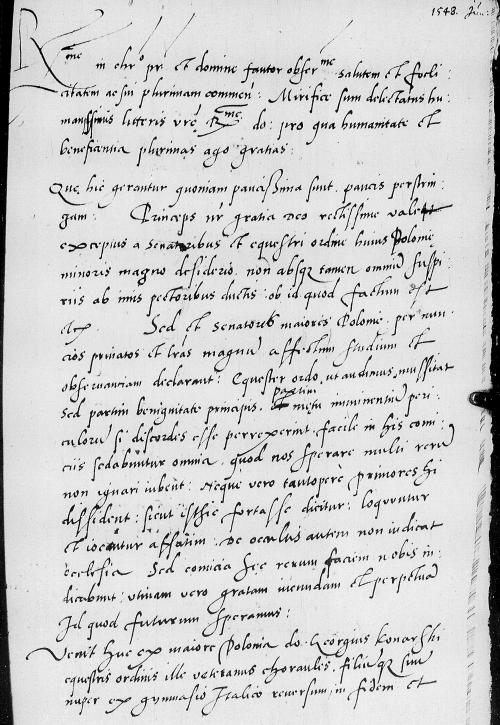 1548. Jan: 8
R me in chr o pr et domine fautor obser me salutem et foeli:
citatem ac sui plurimam commen: Mirifice sum delectatus hu:
manissimis litteris vre R me do: pro qua humanitate et
beneficentia plurimas ago gratias:
Que hic gerantur quoniam paucissima sunt, paucis perstrin
gam: Princeps nr gratia deo rectissime valet
exceptus a Senatoribus et equestri ordine huius Polonie
minoris magno desiderio, non absq tamen omniu suspi:
riis ab imis pectoribus ductis, ob id quod factum est
Sed et Senatores maiores Polonie, per nun:
cios privatos et lras magnum affectum studium et
observantiam declarant: Equester ordo, ut audimus, mussitat
partim
Sed partim benignitate principis, et metu imminentium peri:
culoru si discordes esse perrexerint, facile in his comi:
ciis sedabuntur omnia, quod nos sperare multi reru
non ignari iubent: Neque vero tantopere primores hi
dissident: sicut isthic fortasse dicitur: loquuntur
et iocantur affatim: De occultis autem non iudicat
ecclesia Sed comicia hec rerum faciem nobis in:
dicabunt: utinam vero gratam iucundam et perpetuam
Id quod futurum speramus:
Venit huc ex maiore Polonia do. Georgius Konarski
equestris ordinis ille veteranus choraules, filiuq suu
nuper ex gymnasio Italico reversum, in fidem et